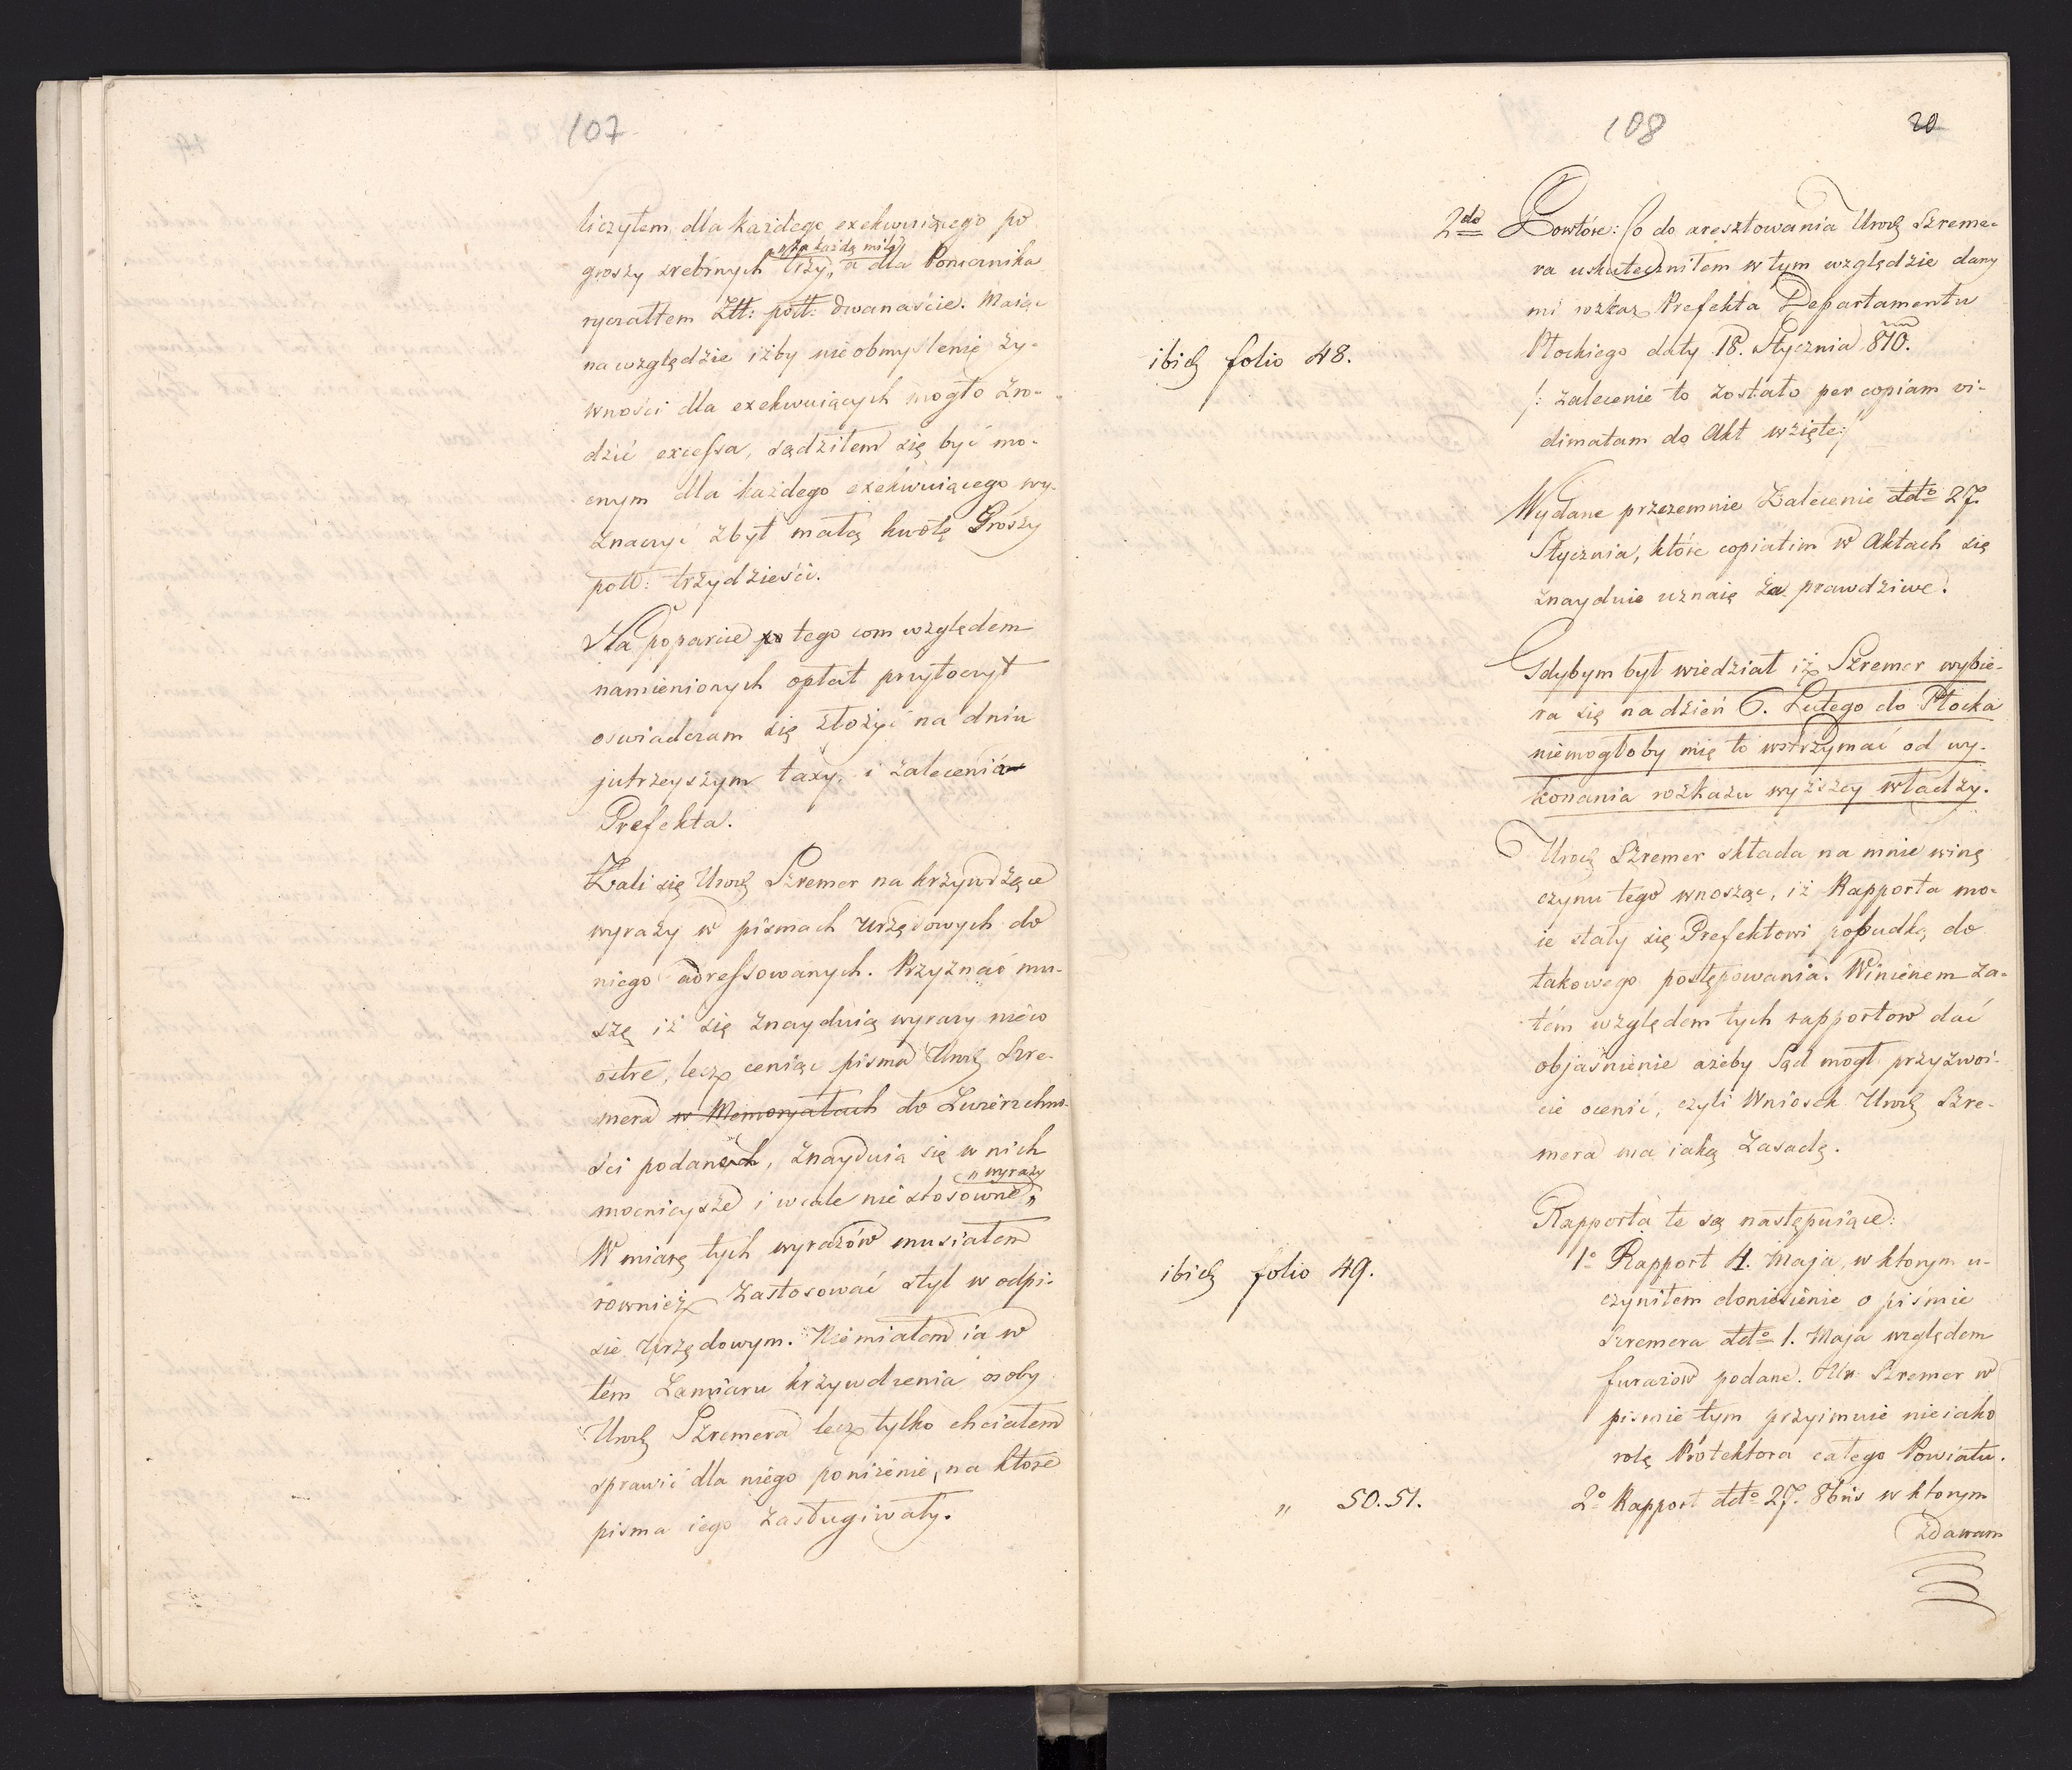 107
liczyłem dla każdego exekwuiącego po
„ na każdą milę „
groszy srebrnych trzy, a dla Pomiernika
ryczałtem Złt: poll: dwanaście. Maiąc
na względzie iżby nieobmyślenię ży-
wności dla exekwuiących mogło zro-
dzić excessa, sądziłem się być mo-
cnym dla każdego exekwuiącego wy-
znaczyć zbyt małą kwotę Groszy
poll: trzydzieści.
Na poparcie tego com względem
namienionych opłat przytoczył
oswiadczam się złożyć na dniu
jutrzeyszym taxy i zalecenia
Prefekta.
Żali się Urodz Szremer na krzywdzące
wyrazy w pismach urzędowych do
niego adressowanych. Przyznać mu-
szę iż się znayduią wyrazy nieco
ostre, lecz ceniąc pisma Urodz Szre-
mera w Memoryałach do Zwierzchno-
ści podane, znayduią się w nich
„ wyrazy
mocnieysze i wcale nie stosowne „
W miarę tych wyrazów musiałem
rownież zastosować styl w odpi-
sie Urzędowym. Niemiałem ia w
tém zamiaru krzywdzenia osoby
Urodz Szremera lecz tylko chciałem
sprawić dla niego poniżenie, na które
pisma iego zasługiwały.
108
20
2do Powtóre: Co do aresztowania Urodz Szreme-
ra uskuteczniłem w tym względzie dany
mi rozkaz Prefekta Departamentu
ibidz folio 48.
Płockiego daty 18. Stycznia 810.
/: zalecenie to zostało per copiam vi-
dimatam do Akt wzięte :/
Wydane przezemnie Zalecenie ddto 27.
Stycznia, które copiatim w Aktach się
znayduie uznaię za prawdziwe.
Gdybym był wiedział iż Szremer wybie-
ra się na dzień 6. Lutego do Płocka
niemogłoby mię to wstrzymać od wy-
konania rozkazu wyższey władzy.
Urodz Szremer składa na mnie winę
czynu tego wnosząc, iż Rapporta mo-
ie stały się Prefektowi pobudką do
takowego postępowania. Winienem za-
tém względem tych rapportow dać
objaśnienie ażeby Sąd mogł przyzwoi-
cie ocenić, czyli Wniosek Urodz Szre-
mera ma iaką zasadę.
Rapporta te są następuiące:
ibidz folio 49.
1o Rapport 4. Maja, w ktorym u-
czyniłem doniesienie o piśmie
Szremera ddto 1. Maja względem
furażow podane. Ur Szremer w
pismie tym przyimuie nieiako
rolę Protektora całego Powiatu.
„ 50. 51.
2o Rapport ddto 27. 8bris w ktorym
zdawam